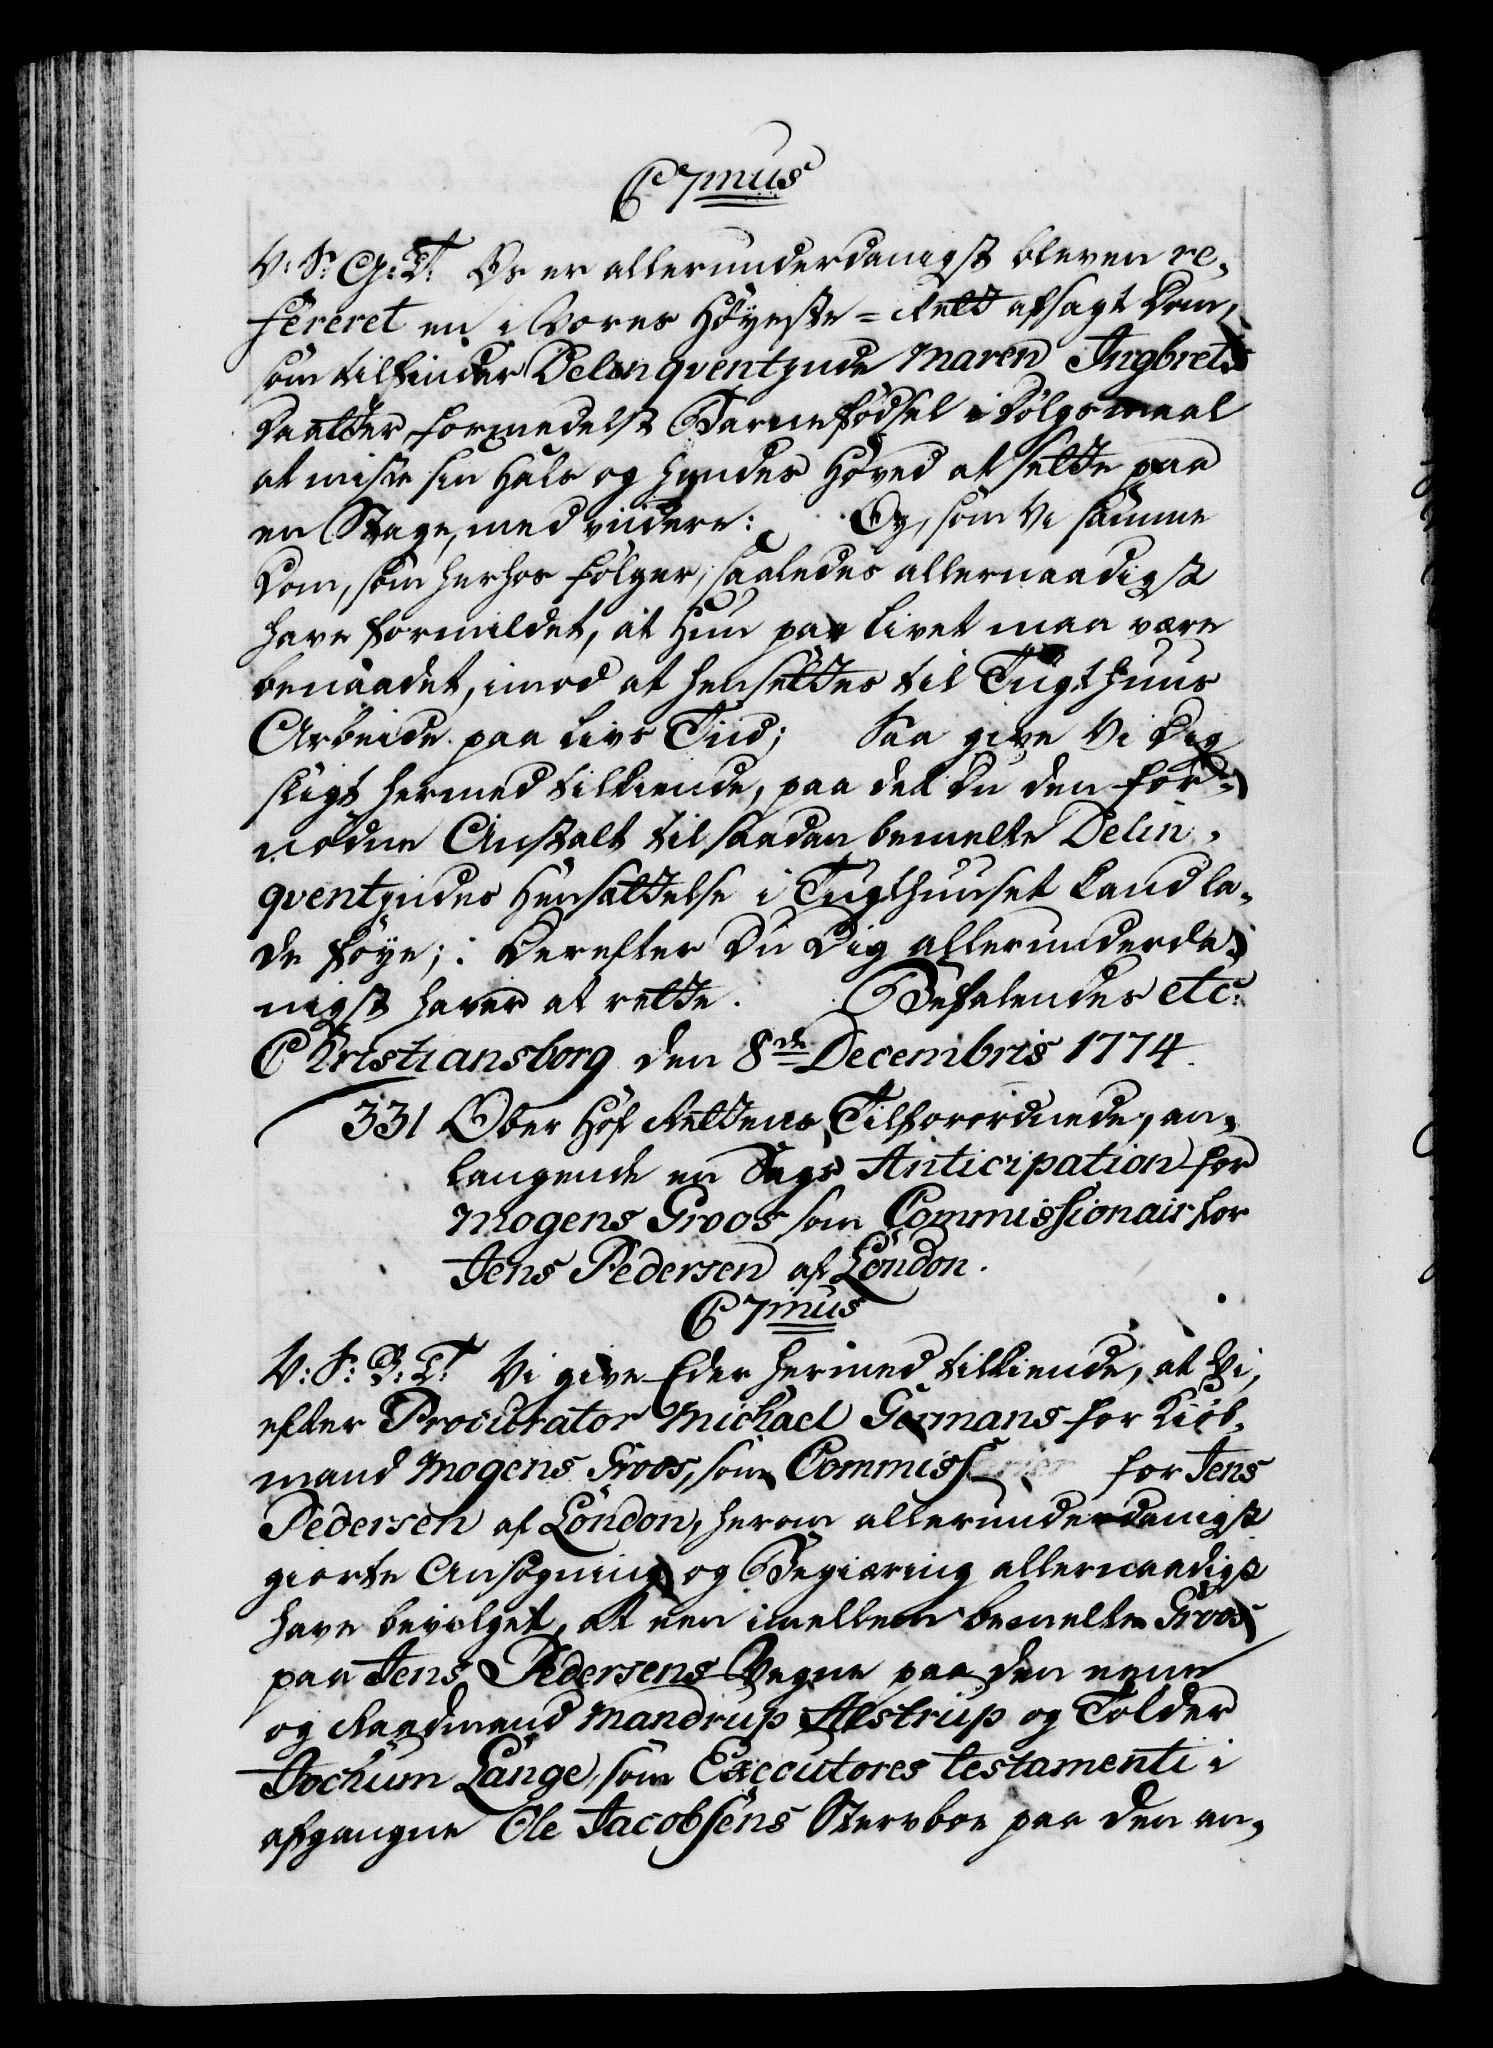 C7mus
V: S: G: T: Os er allerunderdanigst bleven re-
fereret en i Vores Høyeste-Rett afsagt Dom,
som tilfinder Delinqventinde Maren Ingbrets
Daatter formedelst Barnefødsel i Dølgsmaal
at miste sin Hals og hendes Hoved at sette paa
en Stage, med videre: Og, som Vi samme
Dom, som herhos følger, saaledes allernaadigst
have formildet, at Hun paa Livet maa være
benaadet, imod at hensettes til Tugthuus
Arbeide paa Livs Tiid; Saa give Vi Dig
sligt hermed tilkiende, paa det Du den for-
nødne Anstalt til saadan bemelte Delin-
qventindes Hensættelse i Tugthuuset kand la-
de føye; Derefter Du Dig allerunderda-
nigst haver at rette. Befalendes etc:
Christiansborg den 8de Decembris 1774.
331 Ober Hof Rettens Tilforordnede, an-
langende en Sags Anticipation for
Mogens Groos som Commissionair for
Jens Pedersen af London.
C7mus
V: S: B: T: Vi give Eder hermed tilkiende, at Vi,
efter Procurator Michael Germans for Kiøb-
mand Mogens Groos, som Commiss for Jens
Pedersen af London, herom allerunderdanigst
giorte Ansøgning og Begiæring allernaadigst
have bevilget, at een imellem bemelte Groos
paa Jens Pedersens Vegne paa den eene
og Raadmand Mandrup Alstrup og Tolder
Jochum Lange, som Executores testamenti i
afgangne Ole Jacobsens Sterboe paa den an-